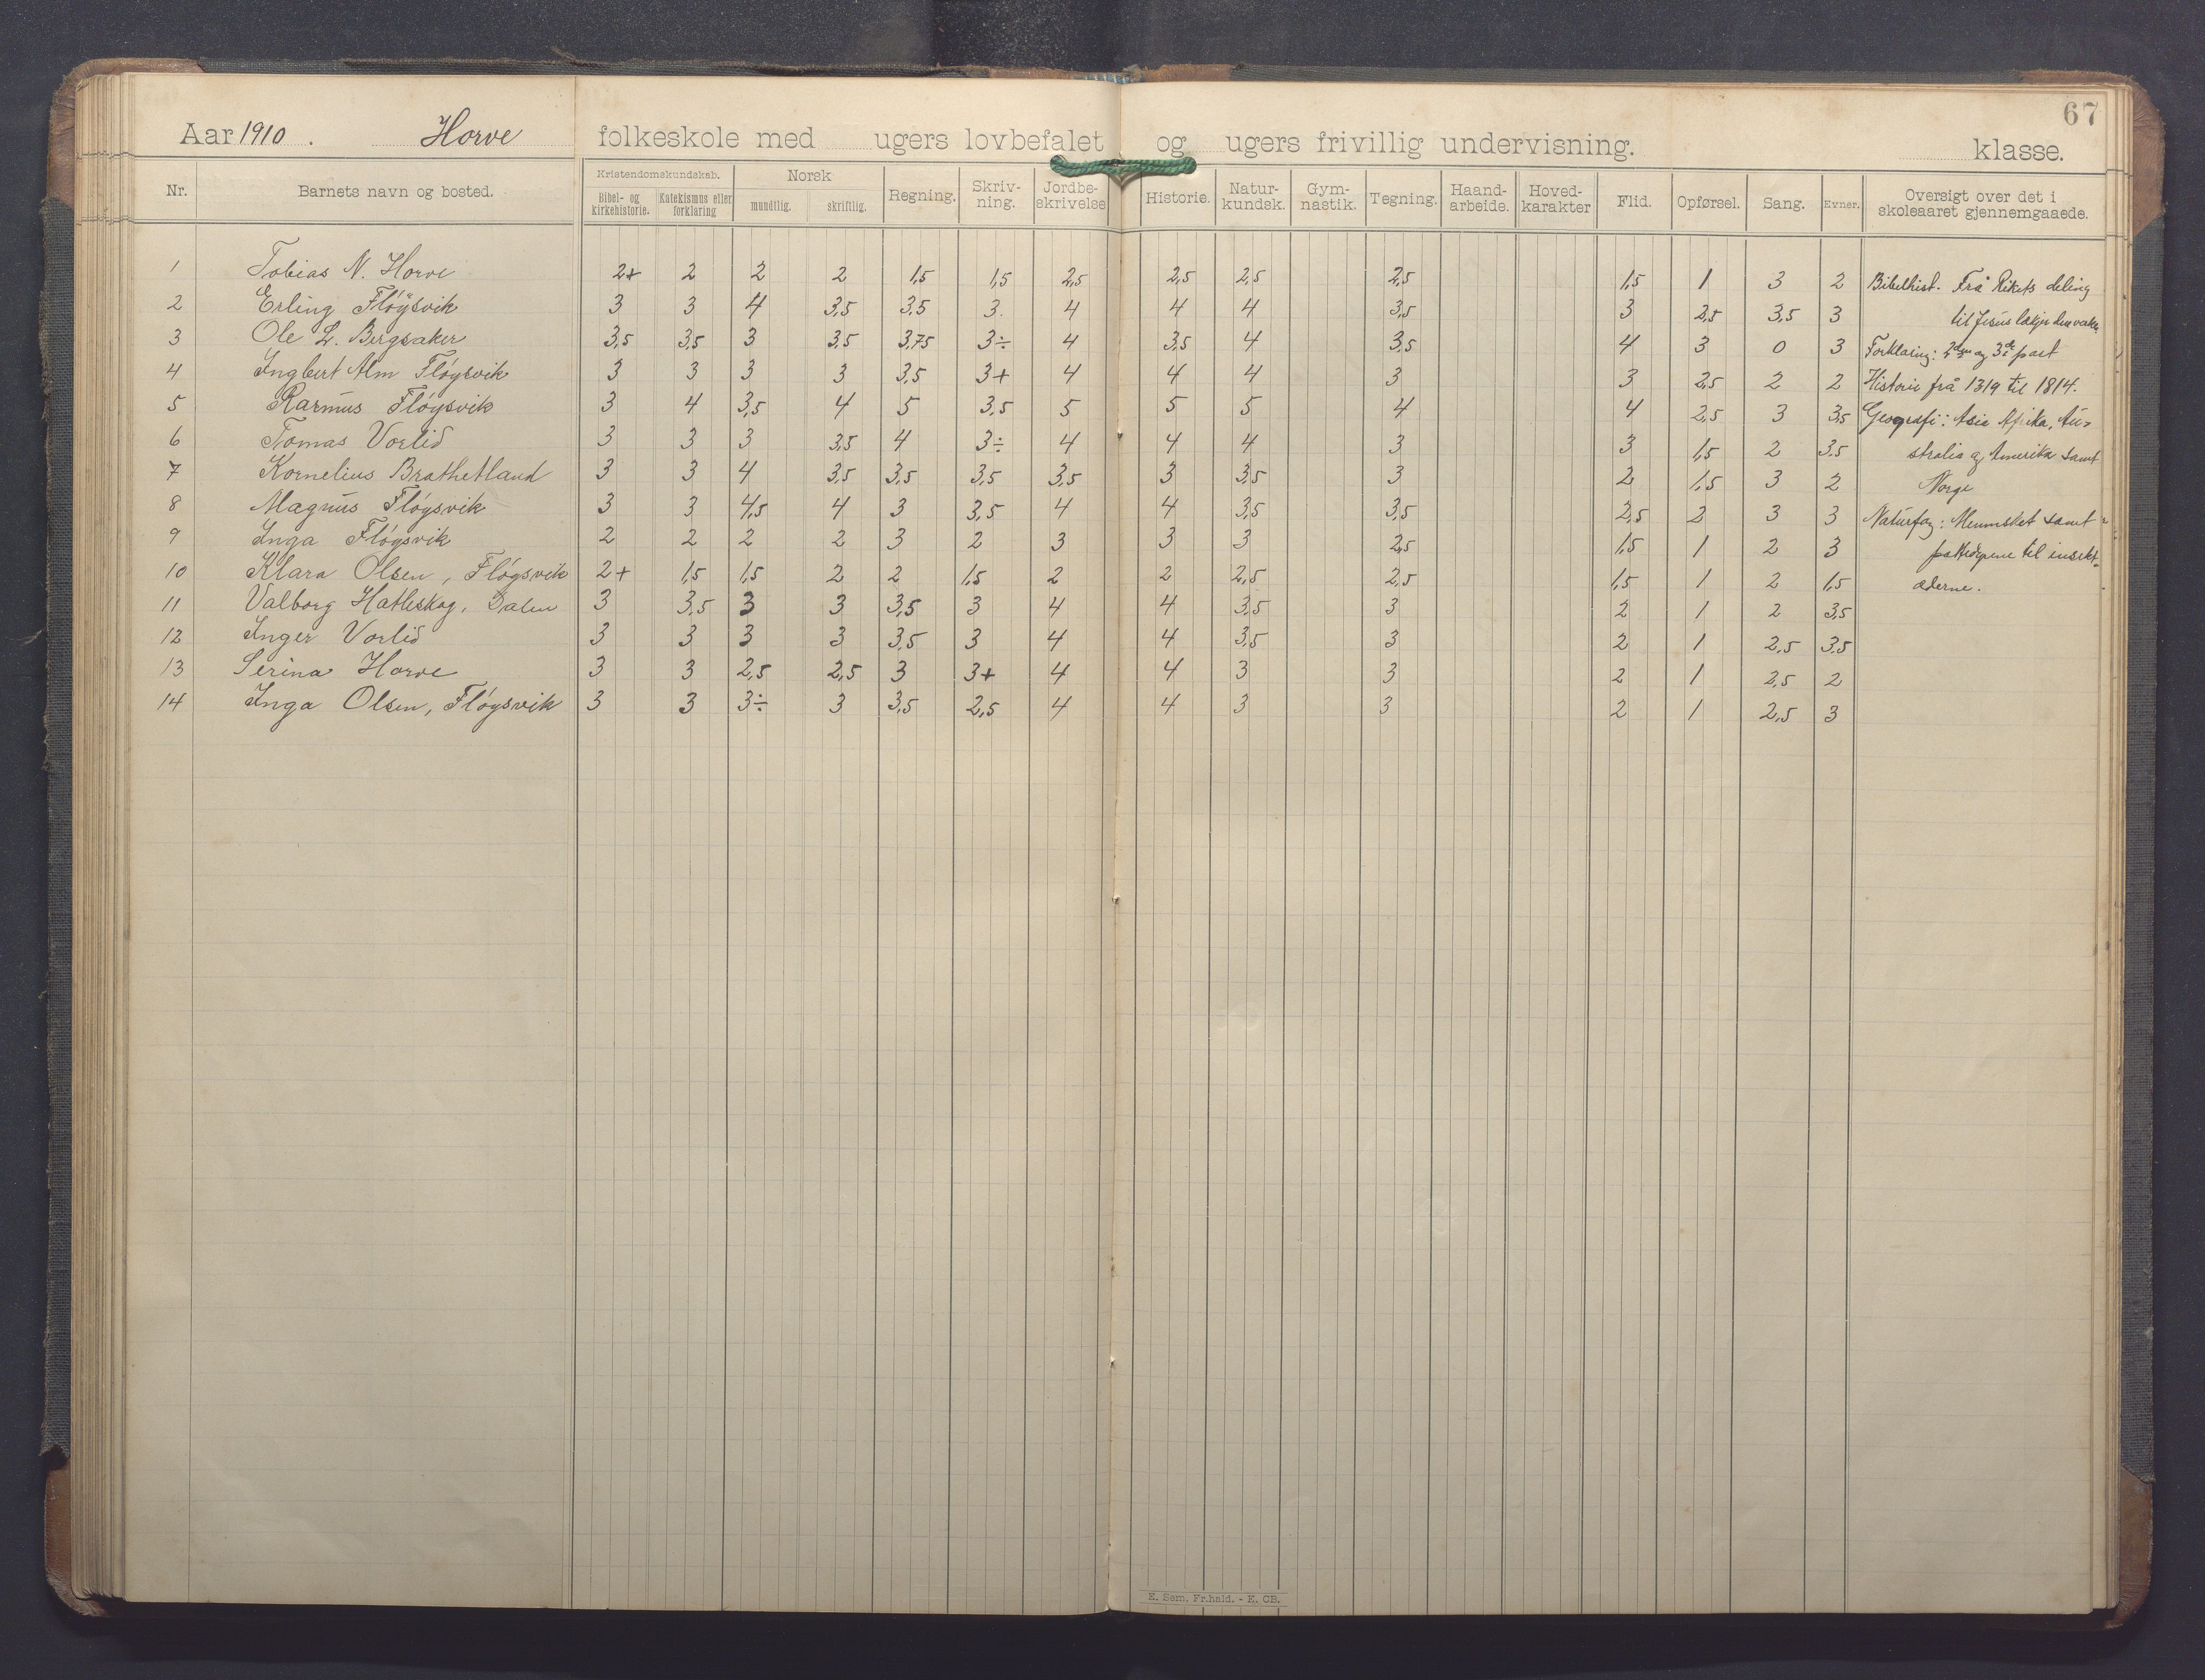 67
Aar 1910. Horve folkeskole med ugers lovbefalet og ugers frivillig undervisning. klasse.
Nr. Barnets navn og bosted. Kristendomskundskab. Bibel- og kirkehistorie. Katekismus eller forklaring Norsk mundtlig. skriftlig. Regning. Skriv-ning. Jordbe-skrivelse Historie. Natur-kundsk. Gym-nastik. Tegning. Haand-arbeide. Hoved-karakter Flid. Opførsel. Sang. Evner. Oversigt over det i skoleaaret gjennemgaaede.
1 Tobias N. Horve 2+ 2 2 2 1,5 1,5 2,5 2,5 2,5 2,5 1,5 1 3 2 Bibelhist. Frå Rikets deling
2 Erling Fløysvik 3 3 4 3,5 3,5 3. 4 4 4 3,5 3 2,5 3,5 3 til Jesus
3 Ole L. Bergsaker 3,5 3,5 3 3,5 3,75 3÷ 4 3,5 4 3,5 4 3 0 3 Forklaring: og 3de part
4 Ingbert Alm Fløysvik 3 3 3 3 3,5 3+ 4 4 4 3 3 2,5 2 2 Historie frå 1319 til 1814.
5 Rasmus Fløysvik 3 4 3,5 4 5 3,5 5 5 5 4 4 2,5 3 3,5 Geografi: Asia Afrika, Au-
6 Tomas Vorlid 3 3 3 3,5 4 3÷ 4 4 4 3 3 1,5 2 3,5 stralia og Amerika samt
7 Kornelius Brathetland 3 3 4 3,5 3,5 3,5 3,5 3 3,5 3 2 1,5 3 2 Norge
8 Magnus Fløysvik 3 3 4,5 4 3 3,5 4 4 3,5 3,5 2,5 2 3 3 Naturfag: Mennesket samt
9 Inga Fløysvik 2 2 2 2 3 2 3 3 3 2,5 1,5 1 2 3 pattedyrene til insekt-
10 Klara Olsen, Fløysvik 2+ 1,5 1,5 2 2 1,5 2 2 2,5 2,5 1,5 1 2 1,5 æderne.
11 Valborg Hatleskog, Dalen 3 3,5 3 3 3,5 3 4 4 3,5 3 2 1 2 3,5
12 Inger Vorlid 3 3 3 3 3,5 3 4 4 3,5 3 2 1 2,5 3,5
13 Serina Horve 3 3 2,5 2,5 3 3+ 4 4 3 3 2 1 2,5 2
14 Inga Olsen, Fløysvik 3 3 3÷ 3 3,5 2,5 4 4 3 3 2 1 2,5 3
E. Sem. Fr.hald. - E. CB.